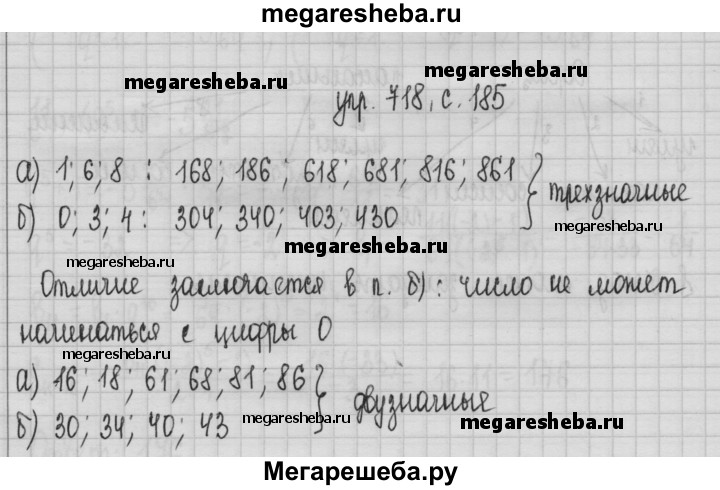 megaresheba.ru
megaresheba.ru
megaresheba.ru
упр. 718, с. 185
а) 1; 6; 8 : 168; 186; 618; 681; 816; 861
б) 0; 3; 4 : 304; 340; 403; 430
} трехзначные
megaresheba.ru
megaresheba.ru
megaresheba.ru
Отличие заключается в п. б) : число не может
начинаться с цифры 0
megaresheba.ru
megaresheba.ru
а) 16; 18; 61; 68; 81; 86
б) 30; 34; 40; 43
} двузначные
megaresheba.ru
megaresheba.ru
Мегарешеба.ру